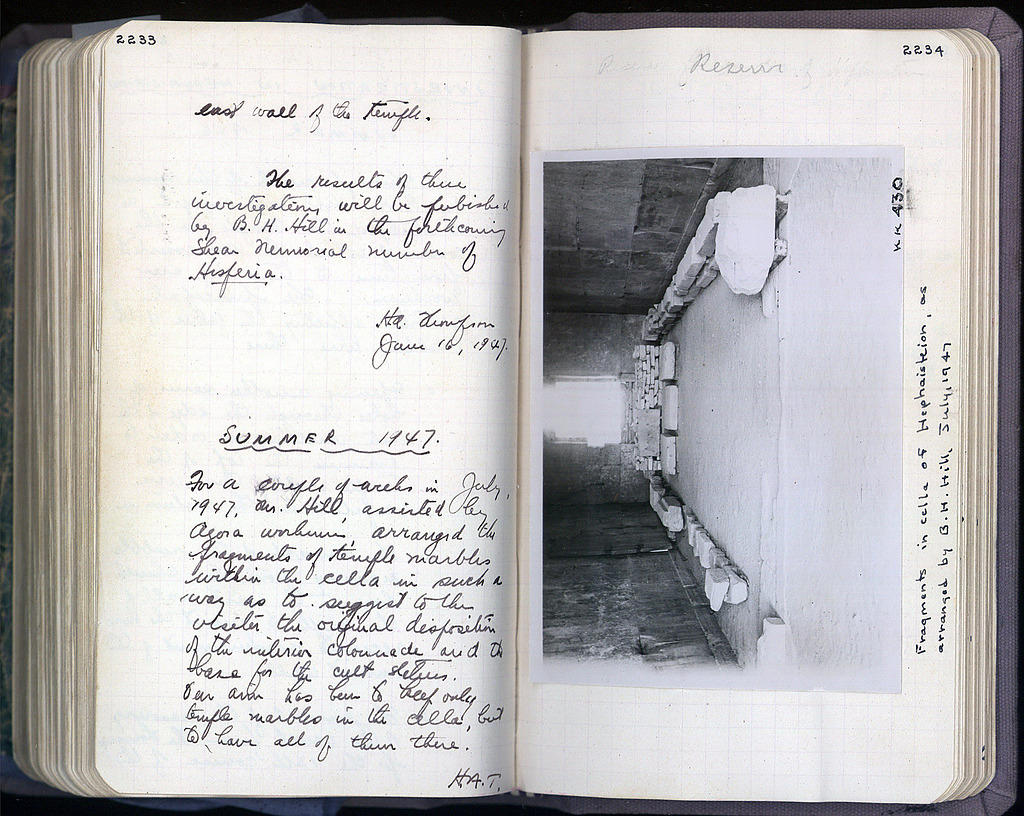 2233
east wall of the temple.
The results of these
investigations will be published
by B. H. Hill in the forthcoming
Shear Memorial number of
Hesperia.
H.A. Thompson
June 16, 1947.
SUMMER 1947.
For a couple of weeks in July,
1947, Mr. Hill, assisted by
Agora workmen, arranged the
fragments of temple marbles
within the cella in such a
way as to suggest to the
visitor the original disposition
of the interior colonnade and the
base for the cult statues.
Our aim has been to keep only
temple marbles in the cella, but
to have all of them there.
H.A.T.
2234
Reserv
KK 430
Fragments in cella of Hephaisteion, as
arranged by B.H. Hill, July, 1947